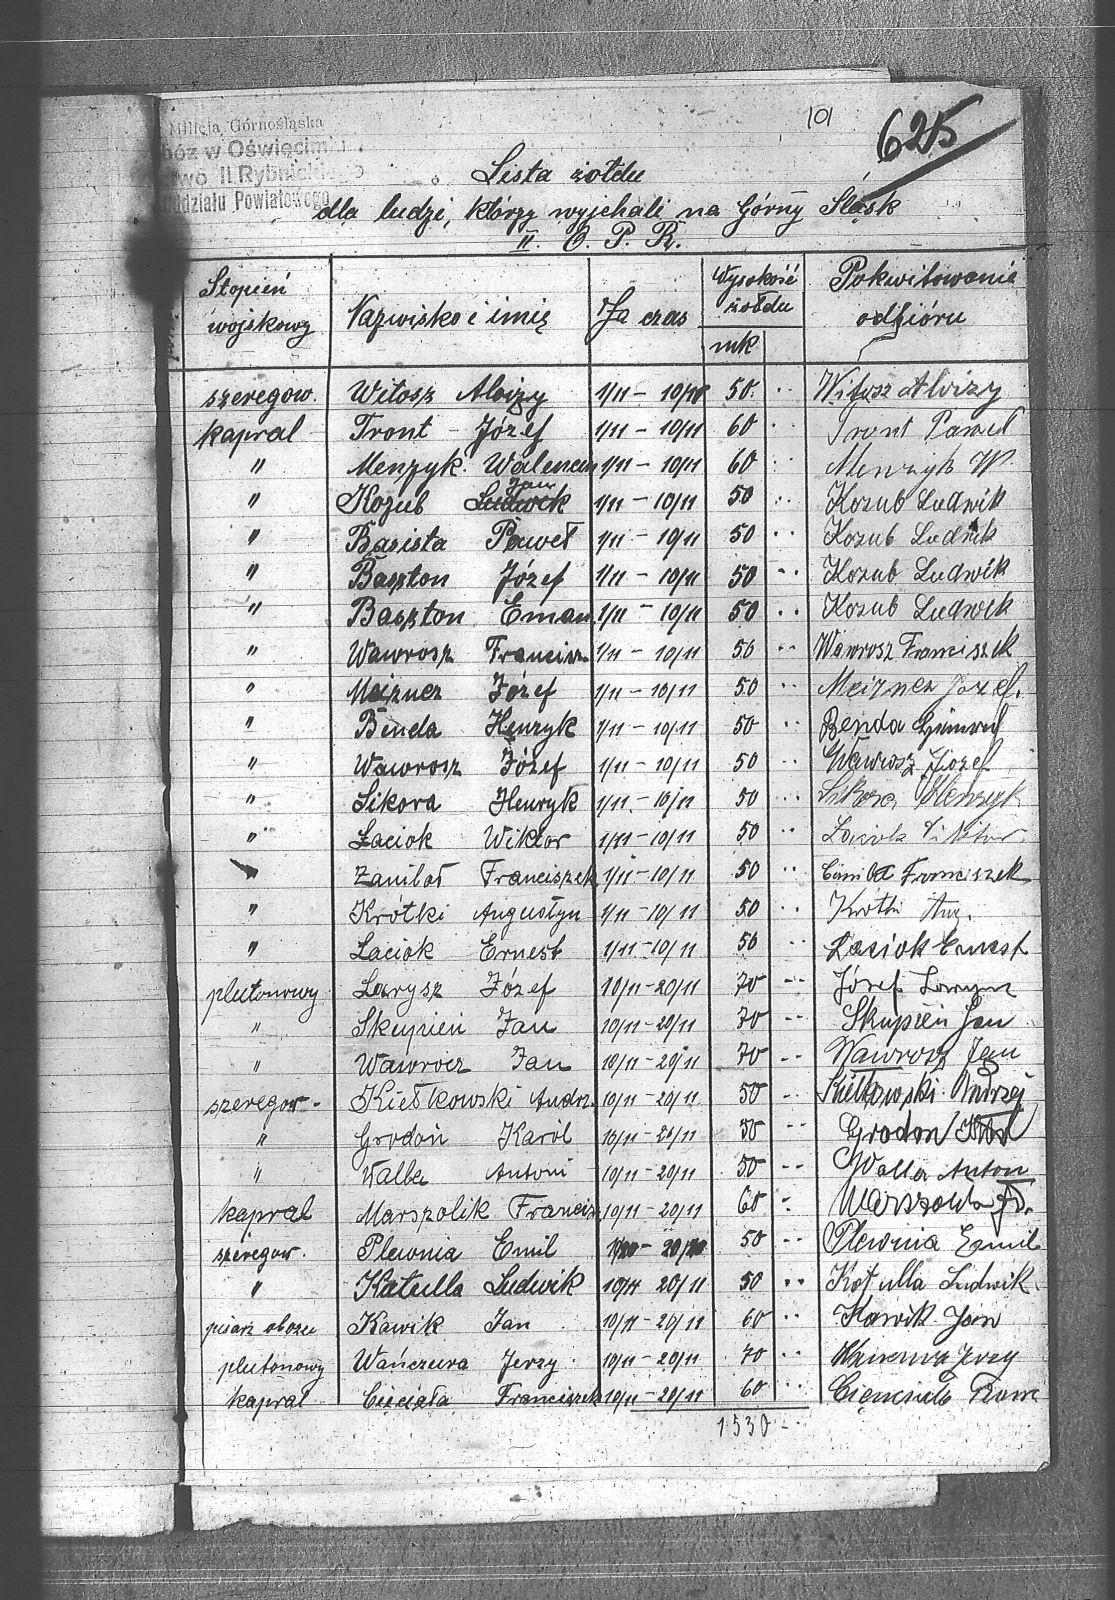 101
625
Milicja Górnośląska
óz w Oświęcimiu
two II Rybnickiego
ddziału Powiatowego
Lista żołdu
dla ludzi, którzy wyjechali na Górny Śląsk
II. O. P. R.
Stopień wojskowy Nazwisko i imię Za czas Wysokość żołdu mk Pokwitowanie odbióru
szeregow. Witosz Aloizy 1/11 - 10/11 50 .. Witosz Aloizy
kapral Tront Józef 1/11 - 10/11 60 .. Tront Paweł
" Menzyk Walencin 1/11 - 10/11 60 .. Menzyk W
" Kozub Ludwik Jan 1/11 - 10/11 50 .. Kozub Ludwik
" Basista Paweł 1/11 - 10/11 50 .. Kozub Ludwik
" Baszton Józef 1/11 - 10/11 50 .. Kozub Ludwik
" Baszton Eman 1/11 - 10/11 50 .. Kozub Ludwik
" Wawrosz Francisz 1/11 - 10/11 50 .. Wawrosz Franciszek
" Meizner Józef 1/11 - 10/11 50 .. Meizner Józef.
" Benda Henryk 1/11 - 10/11 50 .. Benda
" Wawrosz Józef 1/11 - 10/11 50 .. Wawrosz Józef
" Sikora Henryk 1/11 - 10/11 50 .. Sikora Henryk
" Łaciok Wiktor 1/11 - 10/11 50 .. Łaciok Wiktor
" Zamboł Franciszek 1/11 - 10/11 50 .. Franciszek
" Krótki Augustyn 1/11 - 10/11 50 .. Krótki Aug.
" Łaciok Ernest 1/11 - 10/11 50 .. Łaciok Ernest
plutonowy Larysz Józef 10/11 - 20/11 70 -- Józef Larysz
" Skupień Jan 10/11 - 20/11 70 -- Skupień Jan
" Wawrocz Jan 10/11 - 20/11 70 -- Wawrosz Jan
szeregow. Kiełkowski Andrz. 10/11 - 20/11 50 -- Kiełkowski Andrzej
" Grodoń Karól 10/11 - 20/11 50 -- Grodon
" Walla Antoni 10/11 - 20/11 50 -- Walla Anton
kapral Marszolik Francisz 10/11 - 20/11 60 -
szeregow. Plewnia Emil 50 -- Plewnia Emil
" Katulla Ludwik 10/11 20/11 50 .. Kotulla Ludwik.
pisarz obozu Kawik Jan 10/11 - 20/11 60 -- Kawik Jan
plutonowy Wańczura Jerzy 10/11 - 20/11 70 -- Jerzy
kapral Cięciała Franciszek 10/11 - 20/11 60 --
1530 -